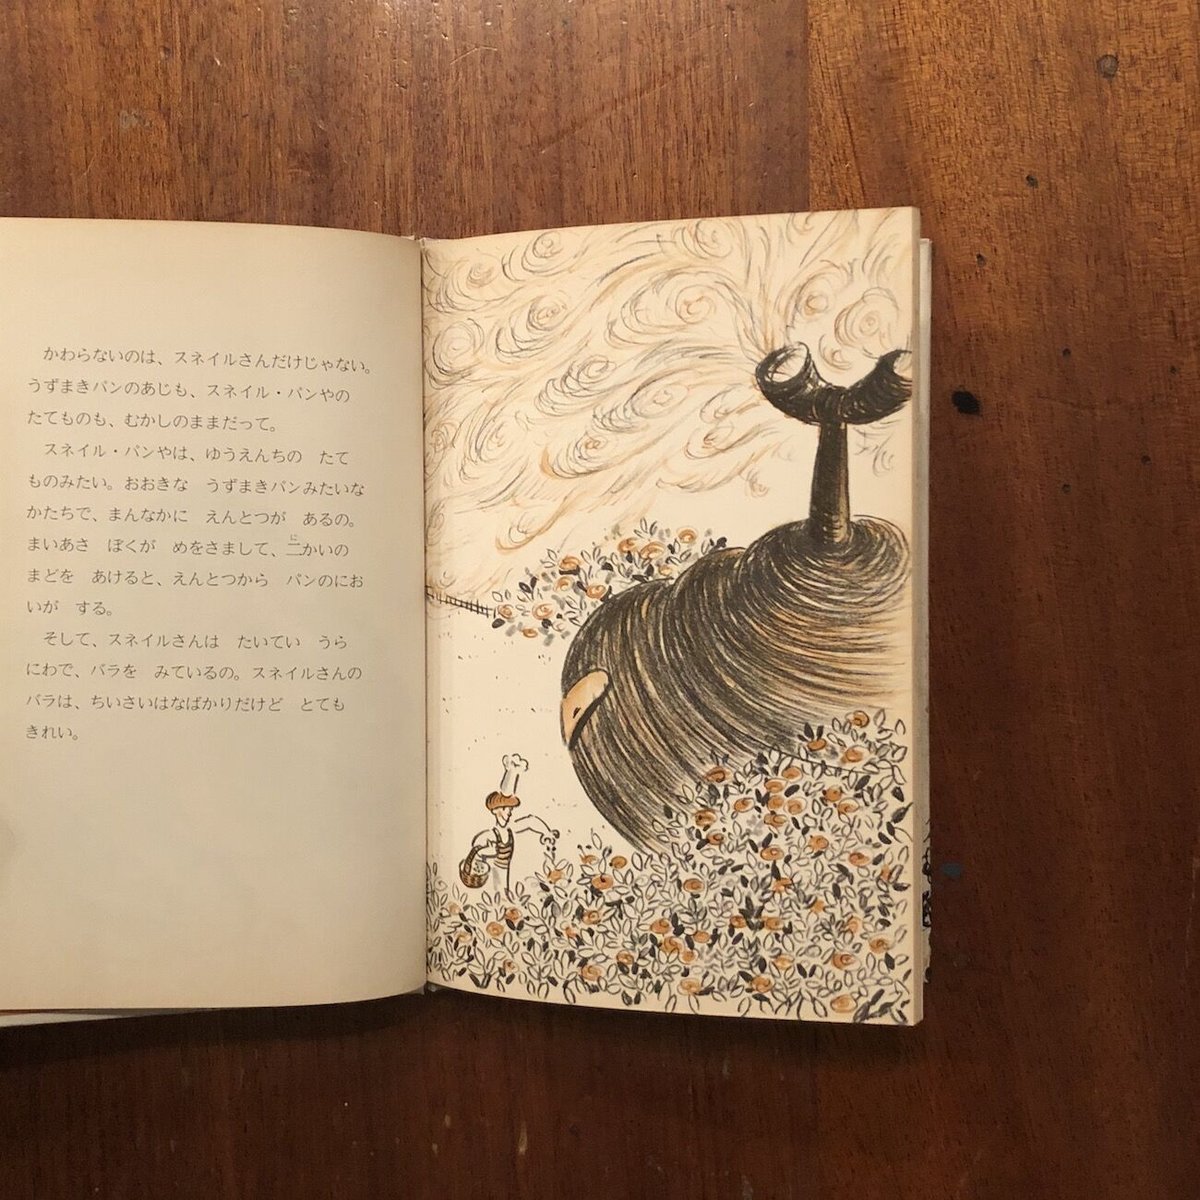 かわらないのは、スネイルさんだけじゃない。
うずまきパンのあじも、スネイル・パンやの
たてものも、むかしのままだって。
スネイル・パンやは、ゆうえんちの　たて
ものみたい。おおきな　うずまきパンみたいな
かたちで、まんなかに　えんとつが　あるの。
まいあさ　ぼくが　めをさまして、二かいの
まどを　あけると、えんとつから　パンのにお
いが　する。
そして、スネイルさんは　たいてい　うら
にわで、バラを　みているの。スネイルさんの
バラは、ちいさいはなばかりだけど　とても
きれい。